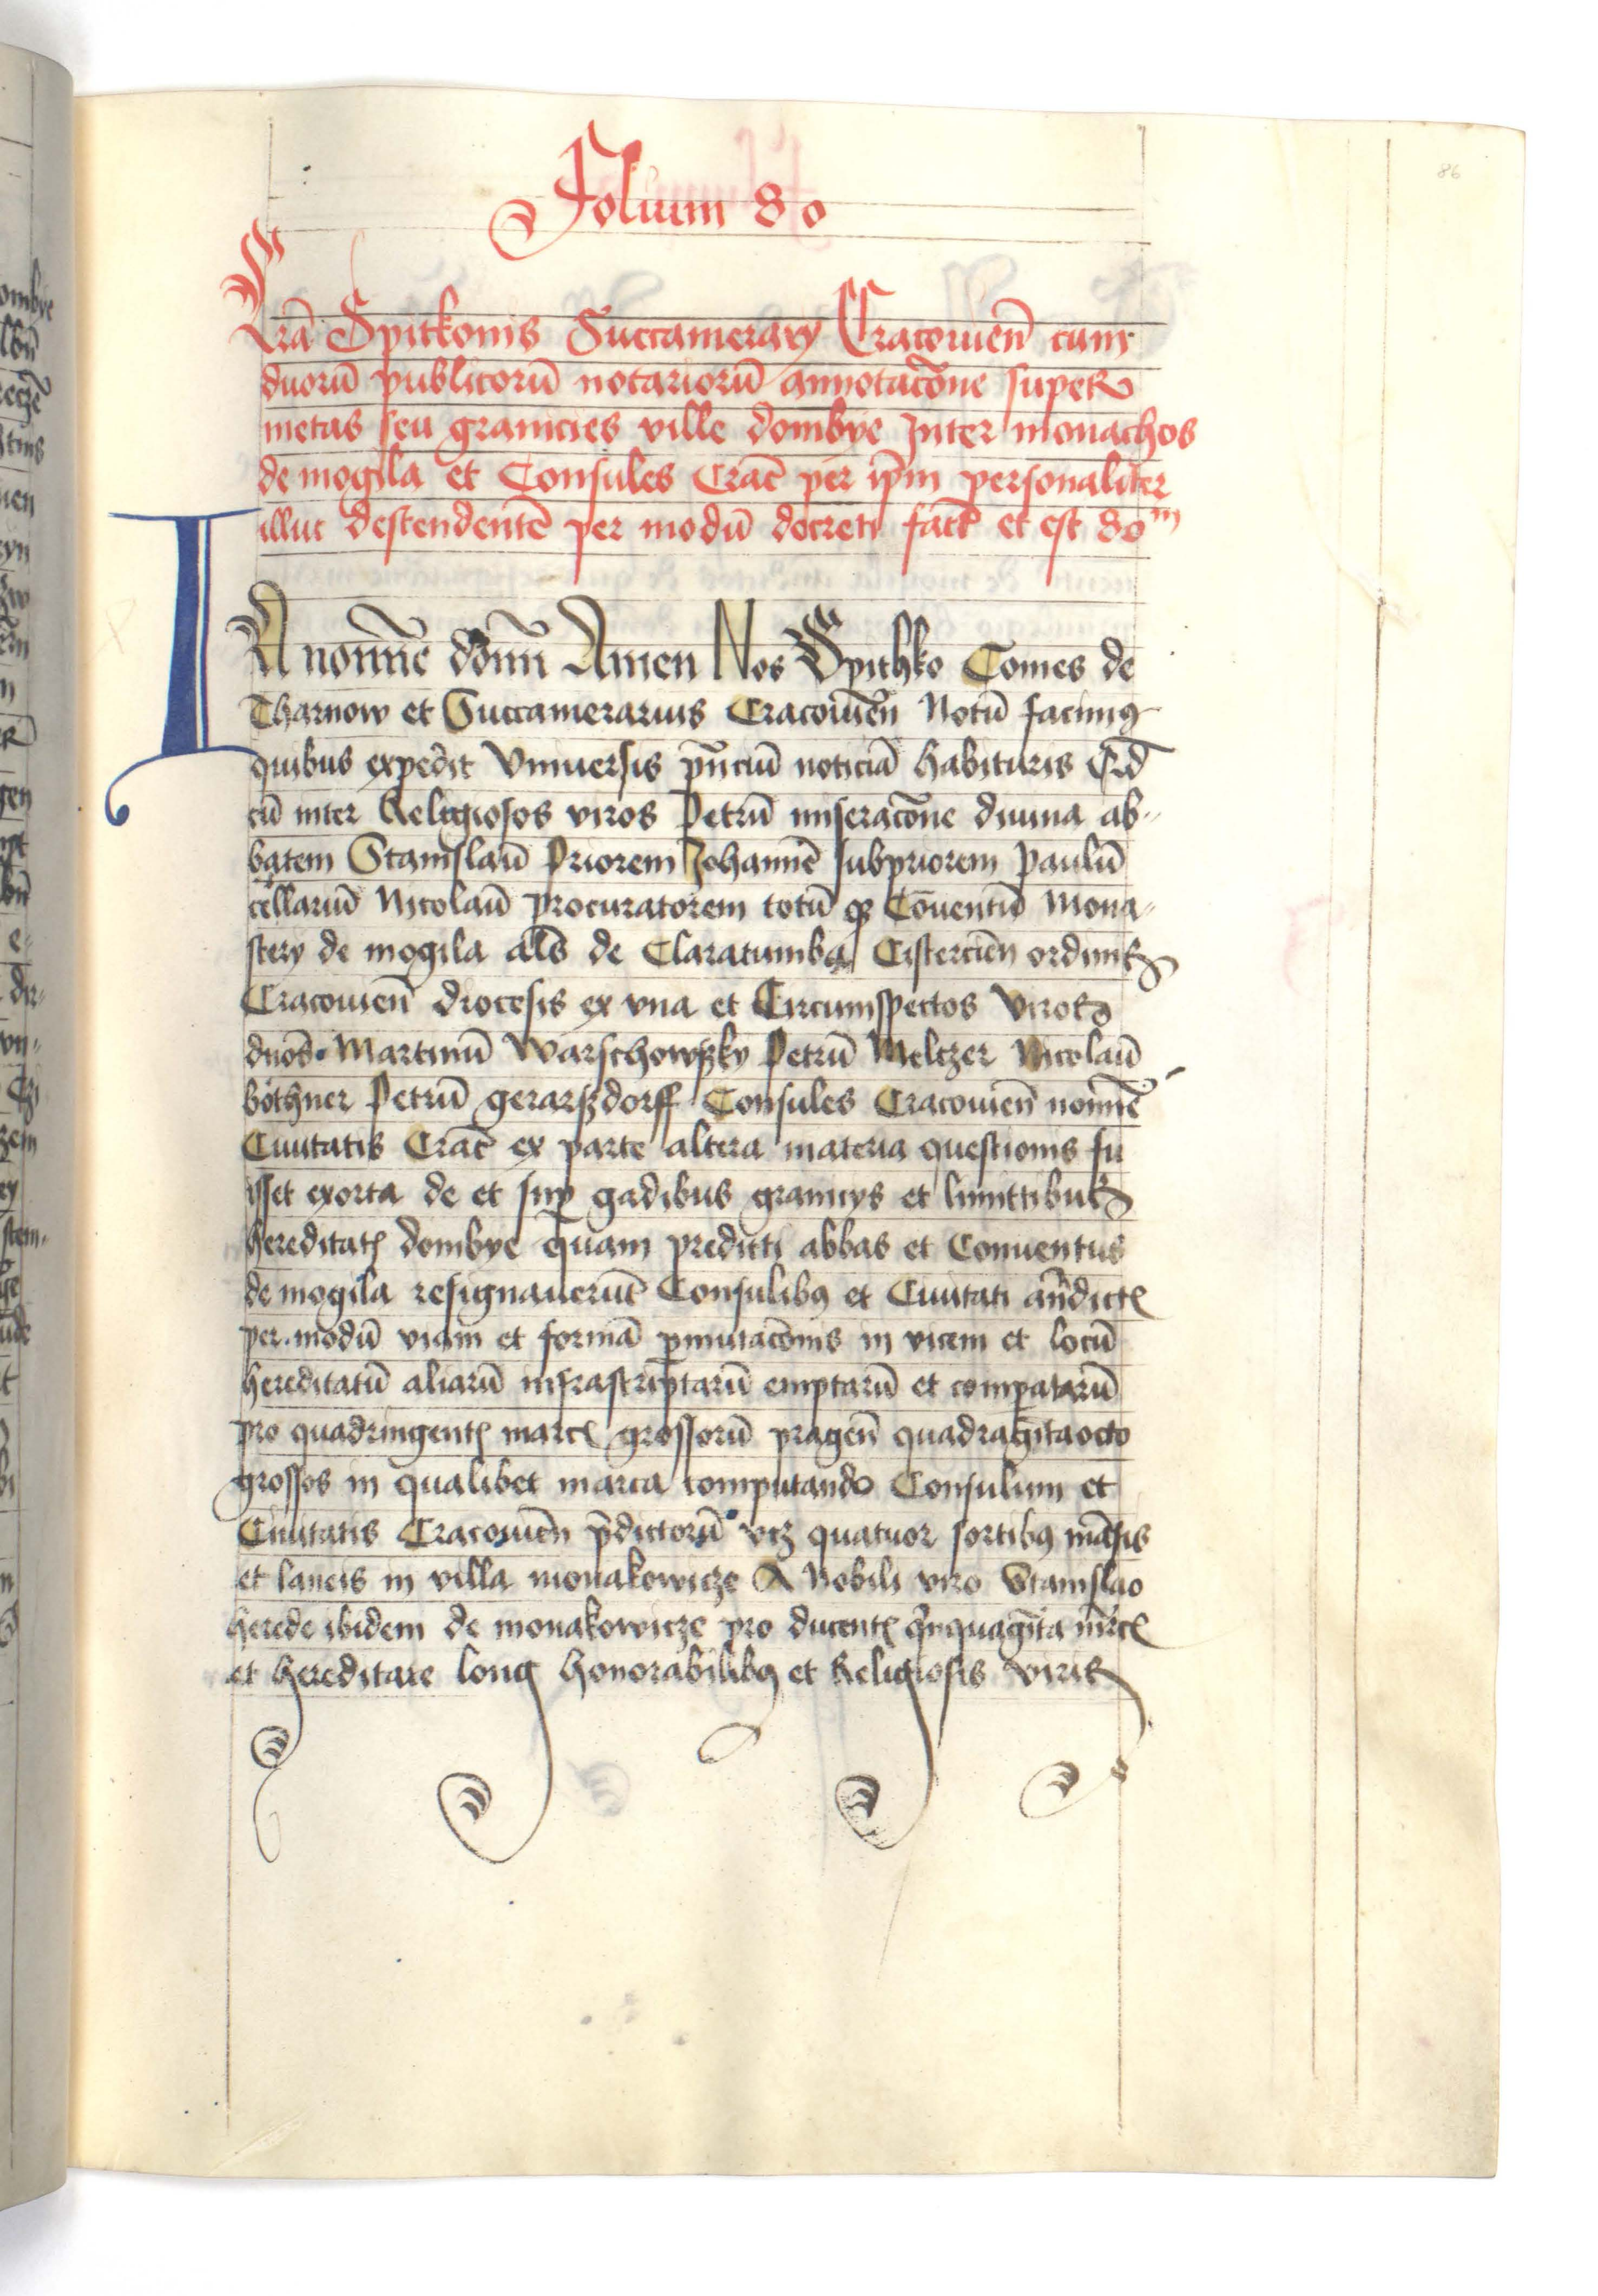 86
Folium 80
Lrā Spitkonis Succamerary Cracouieñ cum
duorū publicorū notariorū annotacōne super
metas seu granicies ville dombye Inter monachos
de mogila et Consules Crac̄ per ip̄m personaliter
illuc descendentē per modū decreti fact̄ et est 80m
IN noīne dom̄ Amen Nos Spithko Comes de
Tharnow et Succamerarius Cracouieñ Notū facimꝰ
quibus expedit Vniuersis pn̄ciū noticiā habituris Qd̄
cū inter Religiosos viros Petrū miseracōne diuina ab-
batem Stanislaū Priorem Johannē subpriorem Paulū
cellariū Nicolaū procuratorem totū qꝫ Cōuentū Mona-
stery de mogila al̄s de Claratumba Cistercieñ ordinis
Cracouieñ diocesis ex vna et Circumspectos Viros
dn̄os Martinū Warschowßky Petrū Meltzer Nicolaū
bothner Petrū gerarßdorff Consules Cracouieñ noīīe
Ciuitatis Crac̄ ex parte altera materia questionis fu
isset exorta de et sup̄ gadibus granicys et limittibus
hereditatꝭ dombye quam predicti abbas et Conuentus
de mogila resignauerūt Consulibꝰ et Ciuitati an̄dictꝭ
per modū viam et formā ꝑmutacōnis in vicem et locū
hereditatū aliarū infrascriptarū emptarū et comparatarū
pro quadringentꝭ marcꝭ grossorū prageñ quadragītaocto
grossos in qualibet marca computando Consulum et
Ciuitatis Cracouieñ p̄dictorū vcꝫ quatuor sortibꝰ māsis
et laneis in villa monakowicze A Nobili viro Stanislao
herede ibidem de monakowicze pro ducentꝭ qn̄quagīta mr̄cꝭ
et hereditate long honorabilibꝰ et Religiosis viris